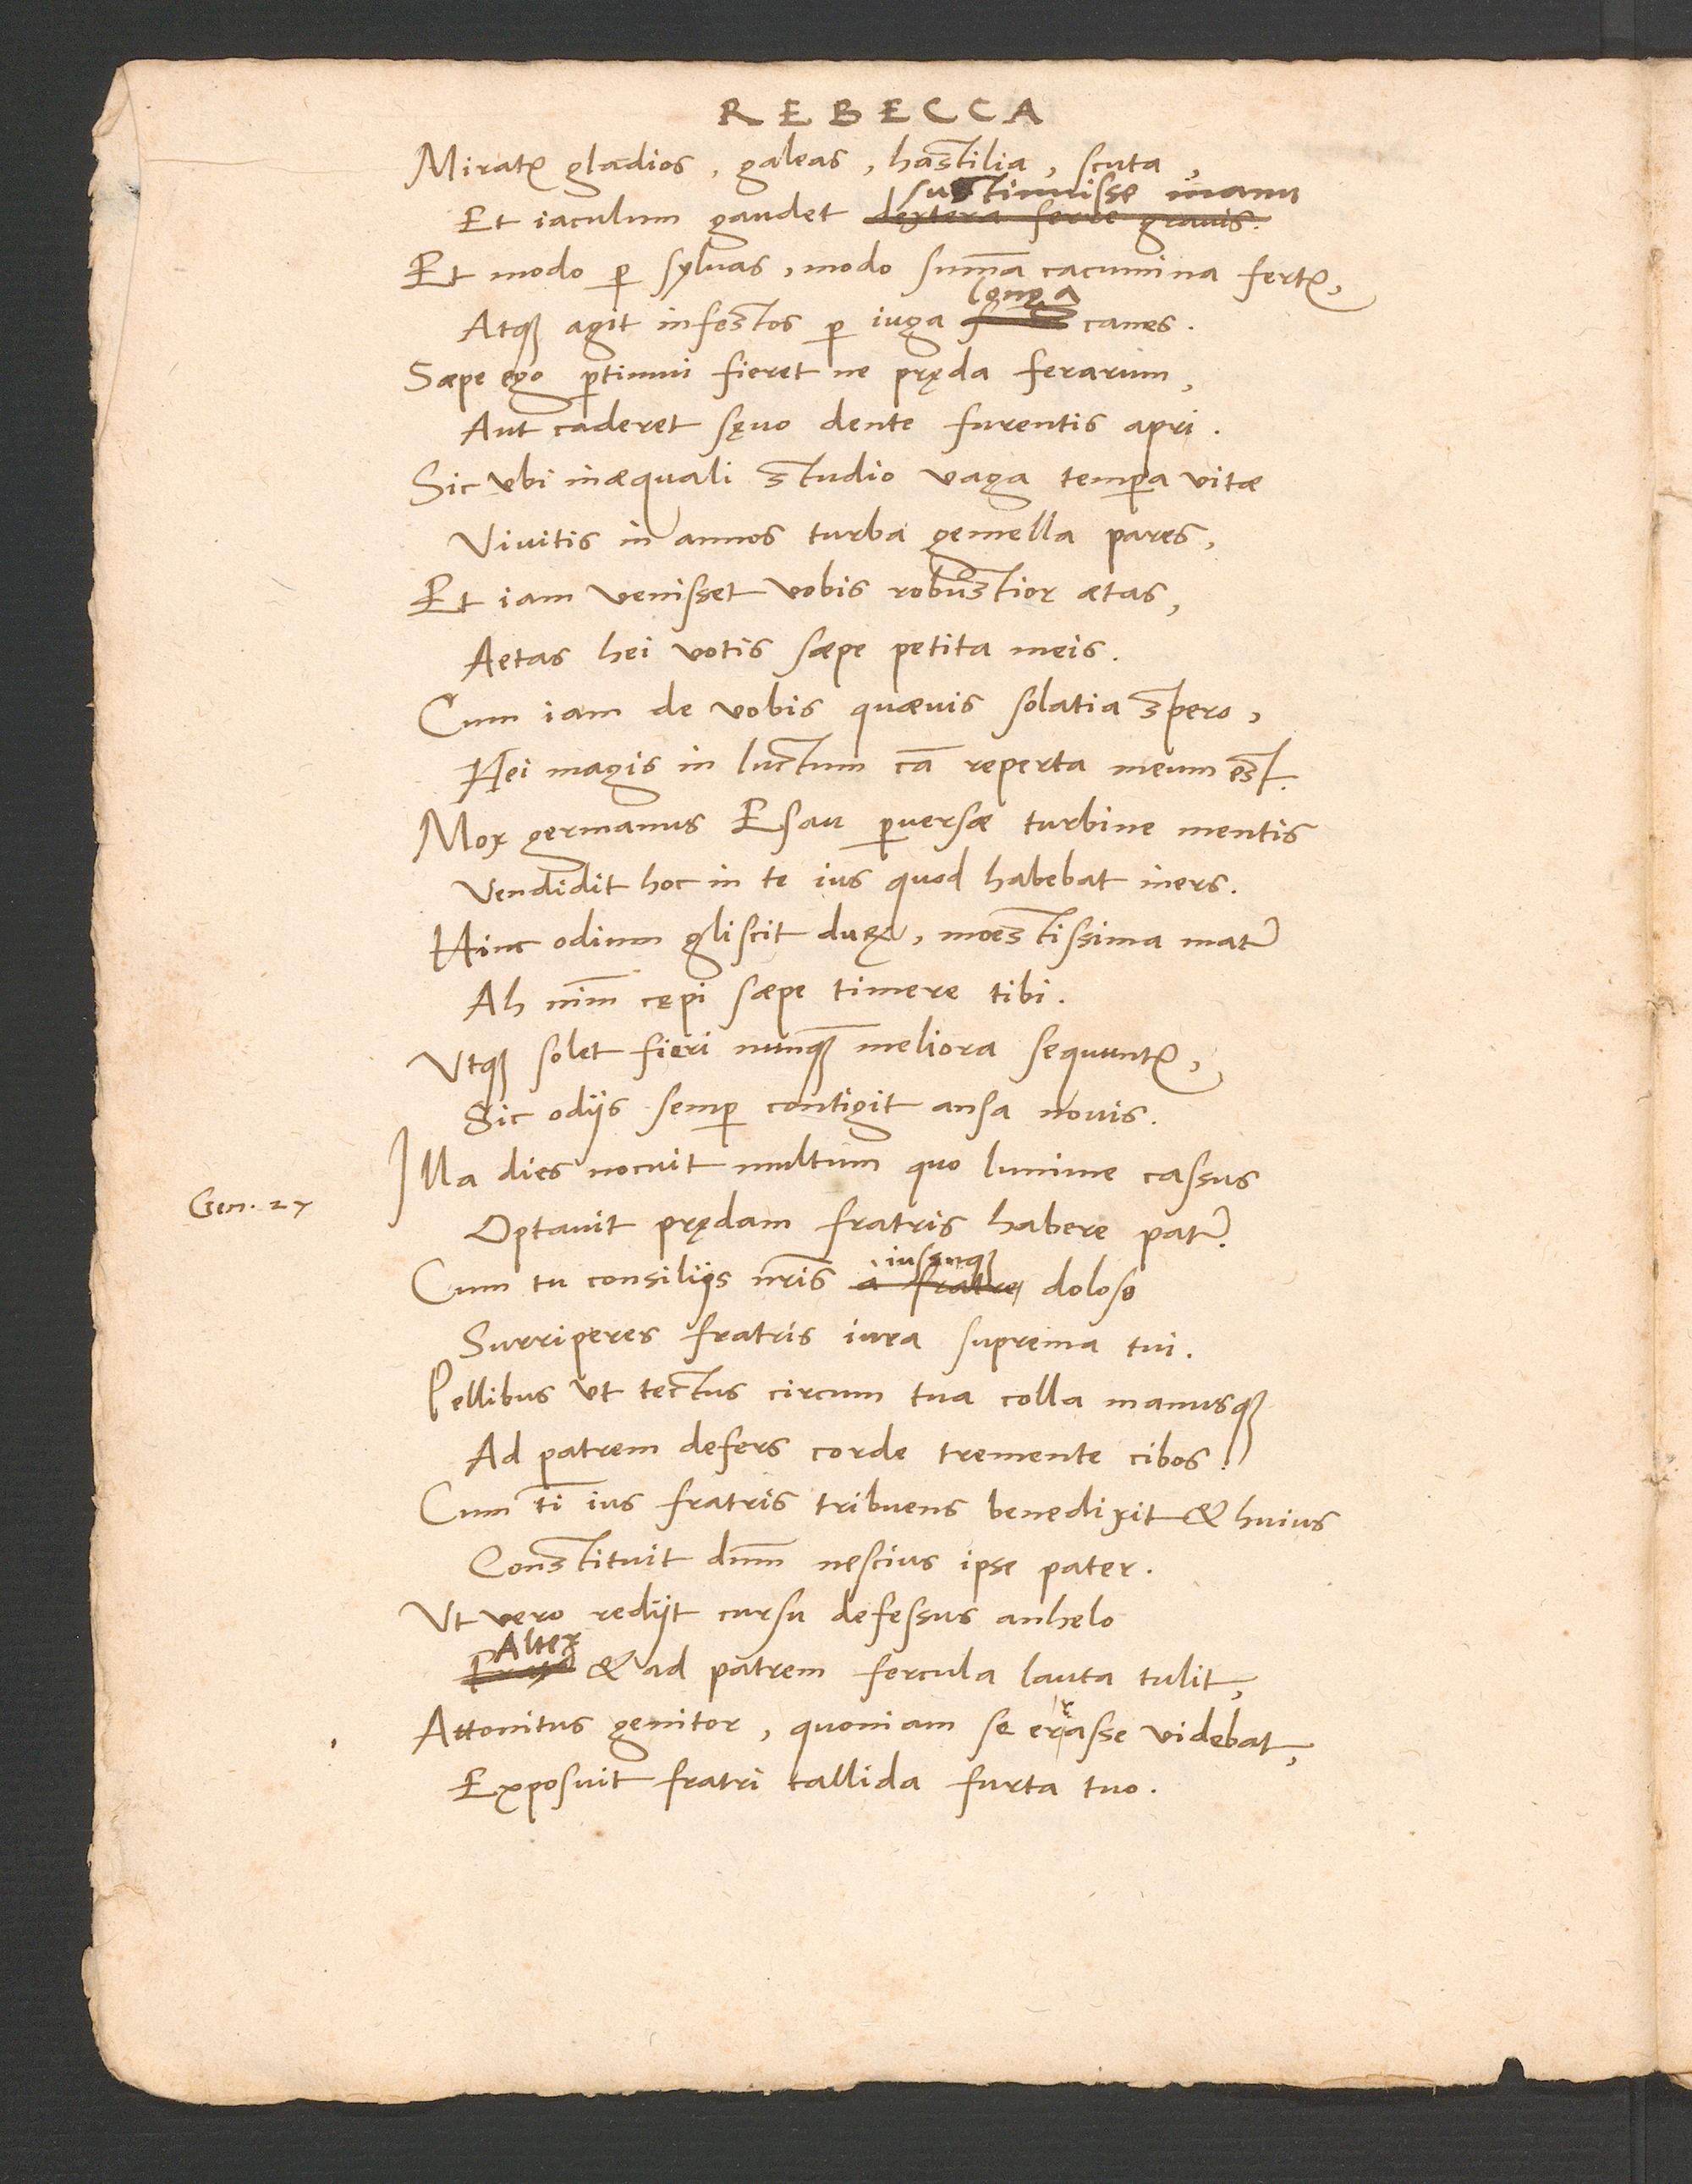 REBECCA
Miratr gladios, galeas, hastilia, scuta,
sustinuisse manu
Et iaculum gaudet dextera ferre grauis.
Et modo p syluas, modo suma cacumina fertr,
longa
Atq agit infestos p iuga canes.
Saepe ego ptimui fieret ne pręda ferarum,
Aut caderet sęuo dente furentis apri.
Sic ubi inaequali studio vaga tempa vitae
Viuitis in annos turba gemella pares,
Et iam venisset vobis robustior aetas,
Aetas hei votis saepe petita meis.
Cum iam de vobis quaeuis solatia spero,
Hei magis in luctum ca reperta meum est.
Mox germanus Esau puersae turbine mentis
Vendidit hoc in te ius quod habebat iners.
Hinc odium gliscit durę, moestissima matr
Ah nim cępi saepe timere tibi.
Utq solet fieri nunq meliora sequuntr,
Sic odijs semp contigit ansa nouis.
Illa dies nocuit multum quo lumine cassus
Gen. 27
Optauit prędam fratris habere patr.
iussuq
Cum tu consilijs nris a fratre doloso
Surriperes fratris iura suprema tui.
Pellibus ut tectus circum tua colla manusq
Ad patrem defers corde tremente cibos.
Cum ti ius fratris tribuens benedixit & huius
Constituit dnm nescius ipse pater.
Ut vero redijt cursu defessus anhelo
Alter
& ad patrem fercula lauta tulit,
Attonitus genitor, quoniam se errasse videbat,
Exposuit fratri callida furta tuo.